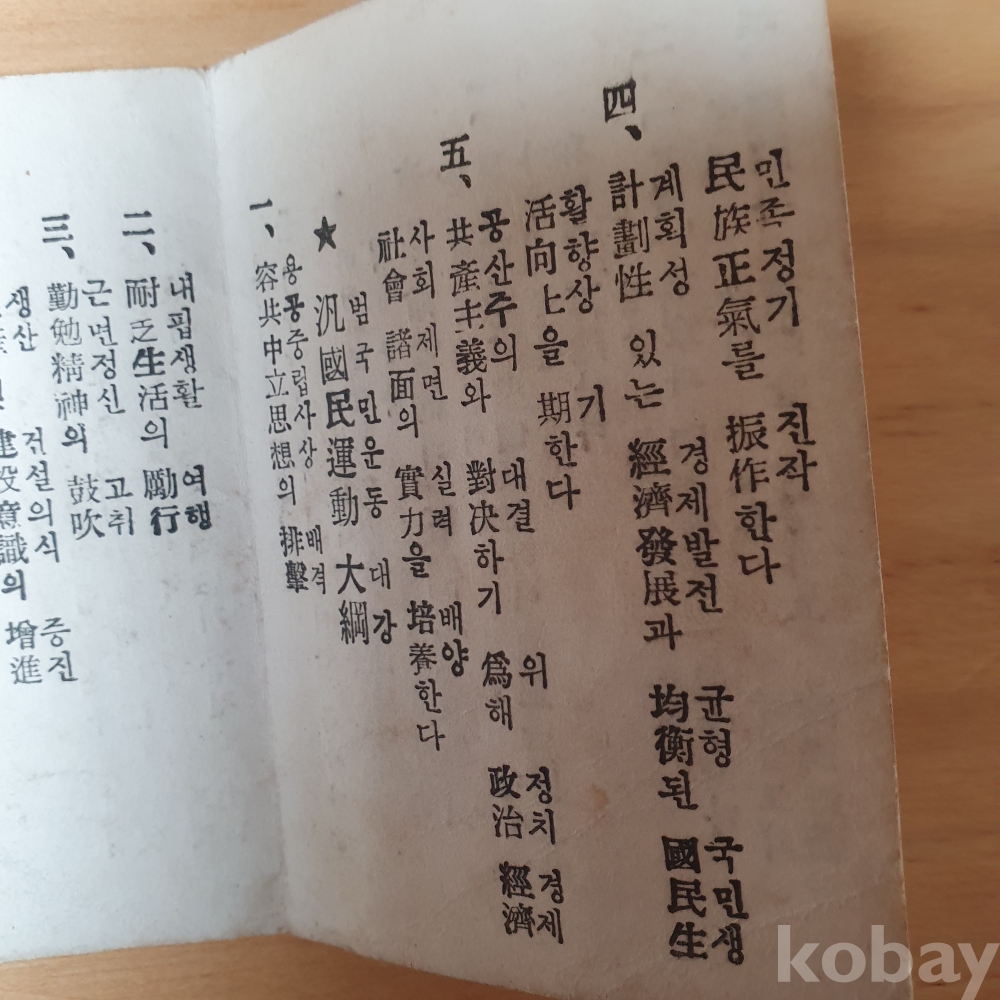 민족정기 진작
民族正氣를 振作한다
계회성 경제발전 균형 국민생
四、計劃性 있는 經濟發展과 均衡된 國民生
활향상 기
活向上을 期한다
공산주의 대결 위 정치 경제
五、共產主義와 對決하기 爲해 政治 經濟
사회 제면 실력 배양
社會 諸面의 實力을 培養한다
범국민운동 대강
★ 汎國民運動 大綱
용공중립사상 배격
一、容共中立思想의 排擊
내핍생활 여행
二、耐乏生活의 勵行
근면정신 고취
三、勤勉精神의 鼓吹
생산 건설의식 증진
意識의 增進
kobay